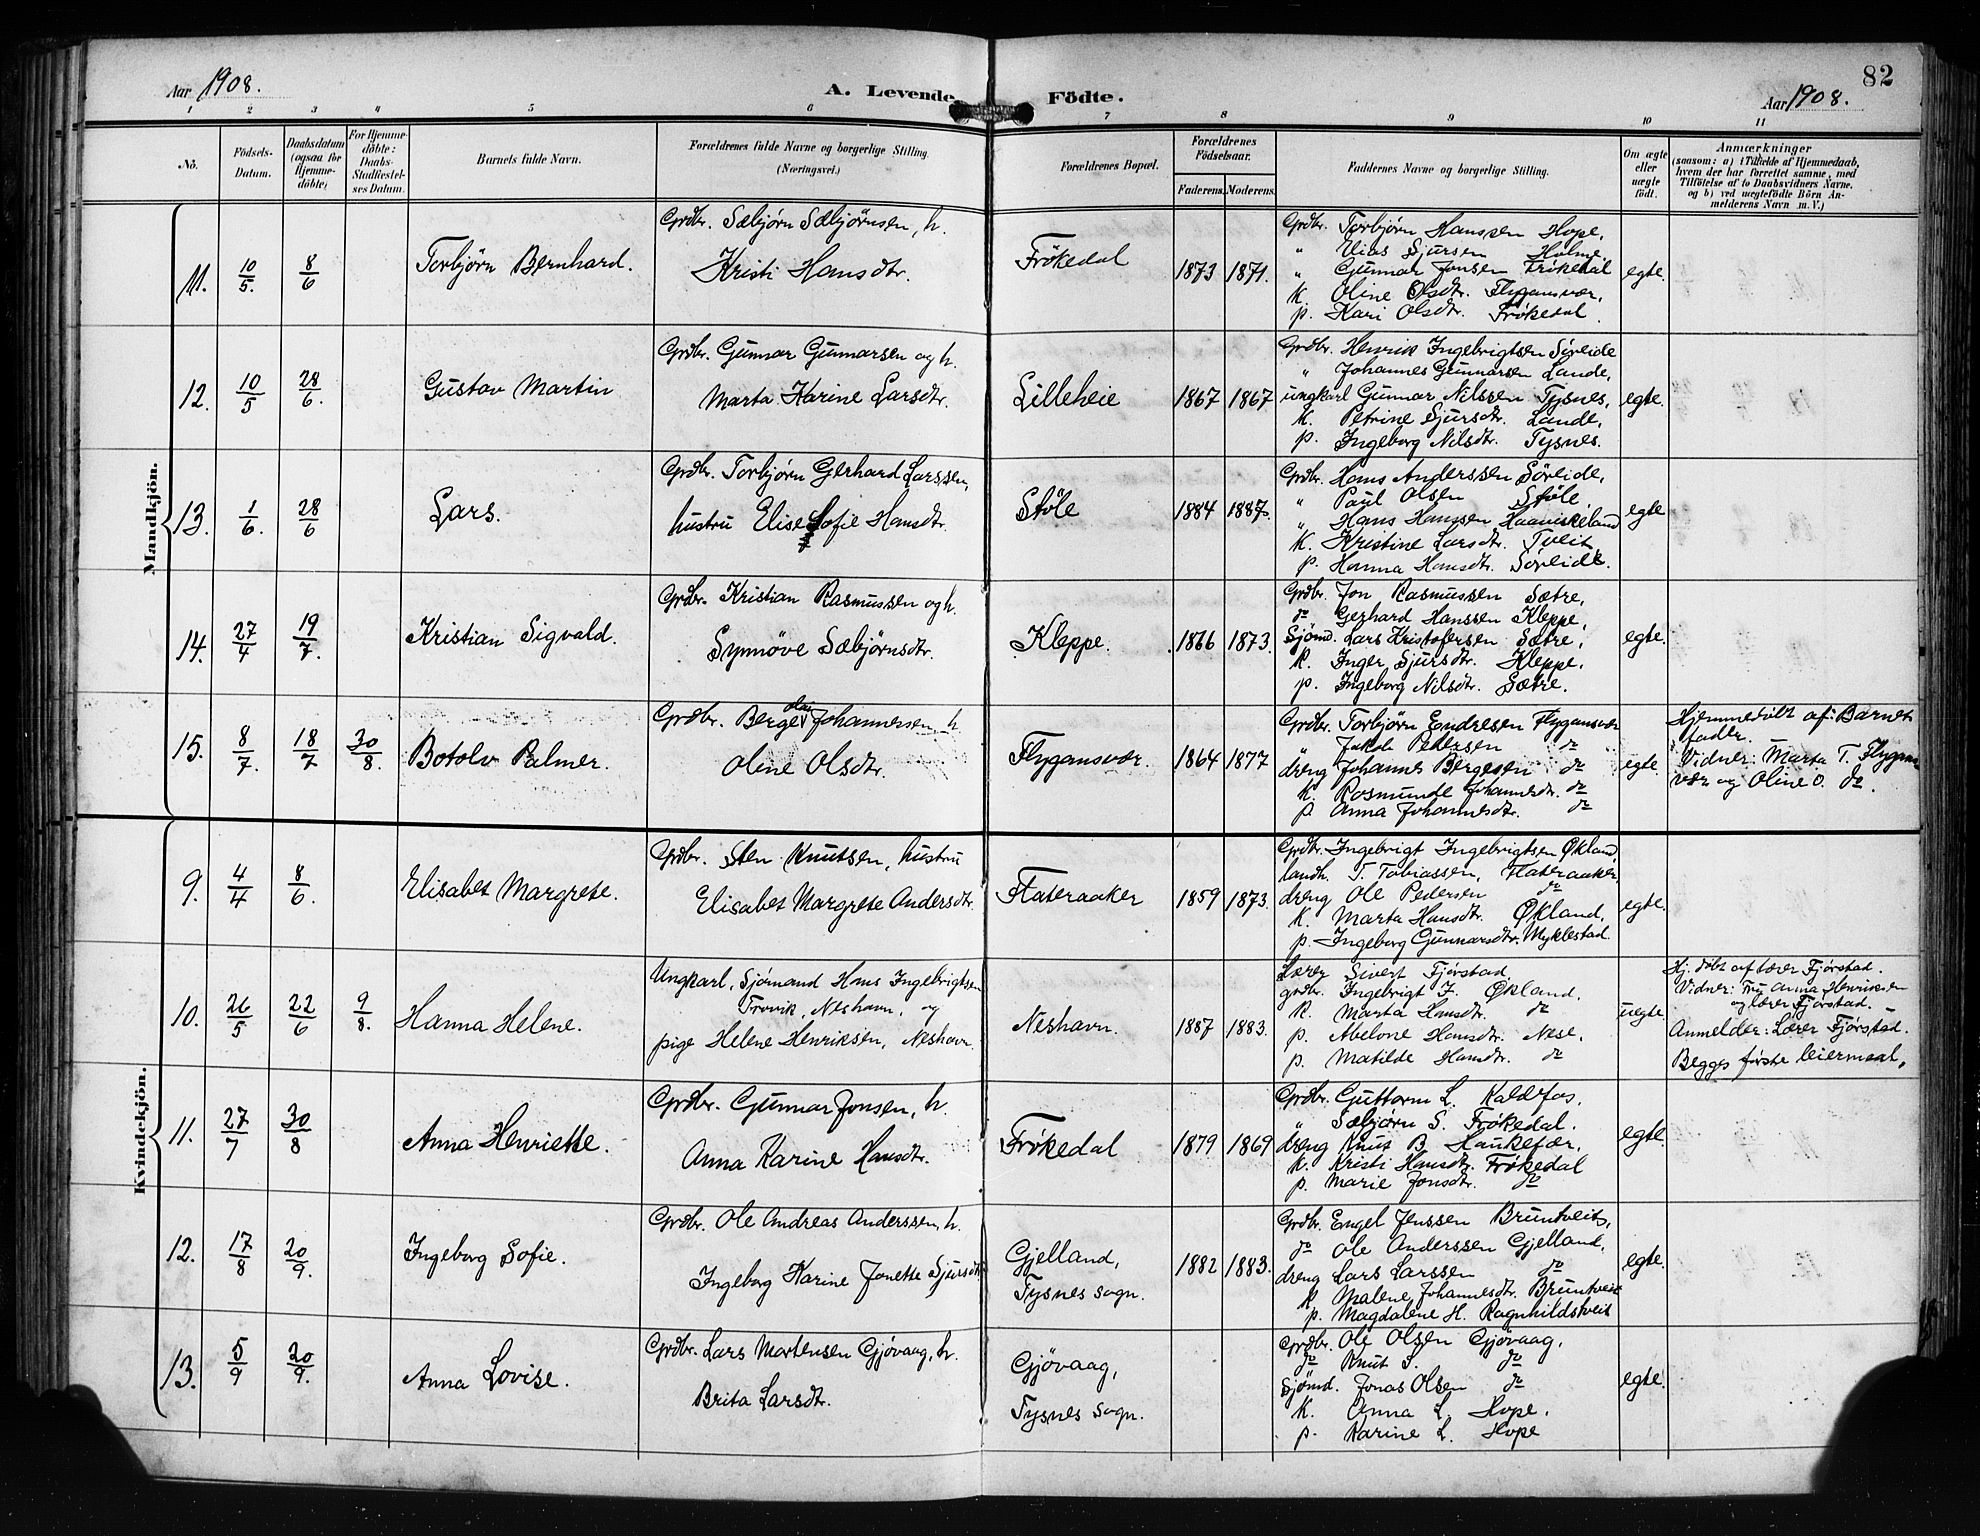 82
Aar 1908.
A. Levende Födte.
Aar 1908.
1 2 3 4 5 6 7 8 9 10 11
No.
Födsels-Datum.
Daabsdatum (ogsaa for Hjemmedöbte)
For Hjemmedöbte: Daabs-Stadfæstelses Datum.
Barnets fulde Navn.
Forældrenes fulde Navne og borgerlige Stilling. (Næringsvei.)
Forældrenes Bopæl.
Forældrenes Födselsaar.
Faderens. Moderens.
Faddernes Navne og borgerlige Stilling.
Om ægte eller uægte født.
Anmærkninger
(saasom: a) i Tilfælde af Hjemmedaab,
hvem der har forrettet samme, med
Tilföielse af to Daabsvidners Navne,
og b) ved uægtefödte Börn An-
melderens Navn m. V.)
Mandkjön.
11. 10/5. 8/6 Torbjørn Bernhard.
Grdbr. Sæbjørn Sæbjørnsen, h.
Kristi Hansdtr.
Frøkedal 1873 1871.
Grdbr. Torbjørn Hanssen Hope,
" Elias Sjursen Holme,
" Gunnar Jonsen Frøkedal
K. Oline Olsdtr. Flygansvær,
p. Kari Olsdtr. Frøkedal.
egte.
12. 10/5 28/6. Gustav Martin
Grdbr. Gunnar Gunnarsen og h.
Marta Karine Larsdtr.
Lilleheie 1867 1867
Grdbr. Henrik Ingebrigtsen Sørleide
" Johannes Gunnarsen Lande,
ungkarl Gunnar Nilssen Tysnes,
K. Petrine Sjursdtr. Lande,
p. Ingeborg Nilsdtr. Tysnes.
egte.
13. 1/6. 28/6 Lars.
Grdbr. Torbjørn Gerhard Larssen,
hustru Elise Sofie Hansdtr.
Støle 1884 1887.
Grdbr. Hans Anderssen Sørleide,
" Paul Olsen Støle,
" Hans Hanssen Haaviskeland
K. Kristine Larsdtr. Tveit
p. Hanna Hansdtr. Sørleide.
egte
14. 27/4 19/7. Kristian Sigvald.
Grdbr. Kristian Rasmussen og h.
Synnøve Sæbjørnsdtr.
Kleppe. 1866 1873.
Grdbr. Jon Rasmussen Sætre,
do Gerhard Hanssen Kleppe,
Sjömd. Lars Kristofersen Sætre,
K. Inger Sjursdtr. Kleppe.
p. Ingeborg Nilsdtr. Sætre.
egte.
15. 8/7. 18/7 30/8. Botolv Palmer.
Grdbr. Berge Olai Johannessen, h
Oline Olsdtr.
Flygansvær. 1864 1877
Grdbr. Torbjørn Endresen Flygansvær
" Jakob Pedersen do
dreng Johannes Bergesen do
K. Rosmunde Johannesdtr. do
p. Anna Johannesdtr. do
egte.
Hjemmedøbt af: Barnets
fader.
Vidner: Marta T. Flygans-
vær og Oline O. do.
Kvindekjön.
9. 4/4 8/6. Elisabet Margrete.
Grdbr. Sten Knutsen, hustru
Elisabet Margrete Andersdtr.
Flateraaker 1859 1873.
Grdbr. Ingebrigt Ingebrigtsen Økland,
landh. T. Tobiassen, Flateraaker,
dreng Ole Pedersen do
K. Marta Hansdtr. Økland.
p. Ingeborg Gunnarsdtr. Myklestad.
egte.
10. 26/5 22/6 9/8. Hanna Helene.
Ungkarl, Sjømand Hans Ingebrigtsen
Trovik, Neshavn, og
pige Helene Henriksen, Neshavn.
Neshavn. 1887 1883.
Lærer Sivert Fjørstad.
grdbr. Ingebrigt I. Økland.
K. Marta Hansdtr. do
p. Abelone Hansdtr. Nese.
p. Matilde Hansdtr. do
uegte.
Hj. døbt af lærer Fjørstad.
Vidner: Fru Anna Henriksen
og lærer Fjørstad.
Anmelder: Lærer Fjørstad.
Begges første leiermaal.
11. 27/7 30/8 Anna Henriette.
Grdbr. Gunnar Jonsen, h.
Anna Karine Hansdtr.
Frøkedal 1879 1869
Grdbr. Guttorm L. Kaldefos,
" Sæbjørn S. Frøkedal.
dreng Knut B. Haukefær.
K. Kristi Hansdtr. Frøkedal
p. Marie Jonsdtr. do
egte.
12. 17/8 20/9. Ingeborg Sofie.
Grdbr. Ole Andreas Anderssen, h.
Ingeborg Karine Jonette Sjursdtr
Gjelland,
Tysnes sogn. 1882 1883.
Grdbr. Engel Jenssen Bruntveit,
do Ole Anderssen Gjelland,
dreng Lars Larssen do
K. Malene Johannesdtr. Bruntveit
p. Magdalene H. Ragnhildstveit
egte.
13. 5/9 20/9. Anna Lovise.
Grdbr. Lars Mortensen Gjøvaag, h.
Brita Larsdtr.
Gjøvaag,
Tysnes sogn.
Grdbr. Ole Olsen Gjøvaag,
do Knut S. do
Sjömd. Jonas Olsen do
K. Anna L. Hope.
p. Karine L. Hope
egte.